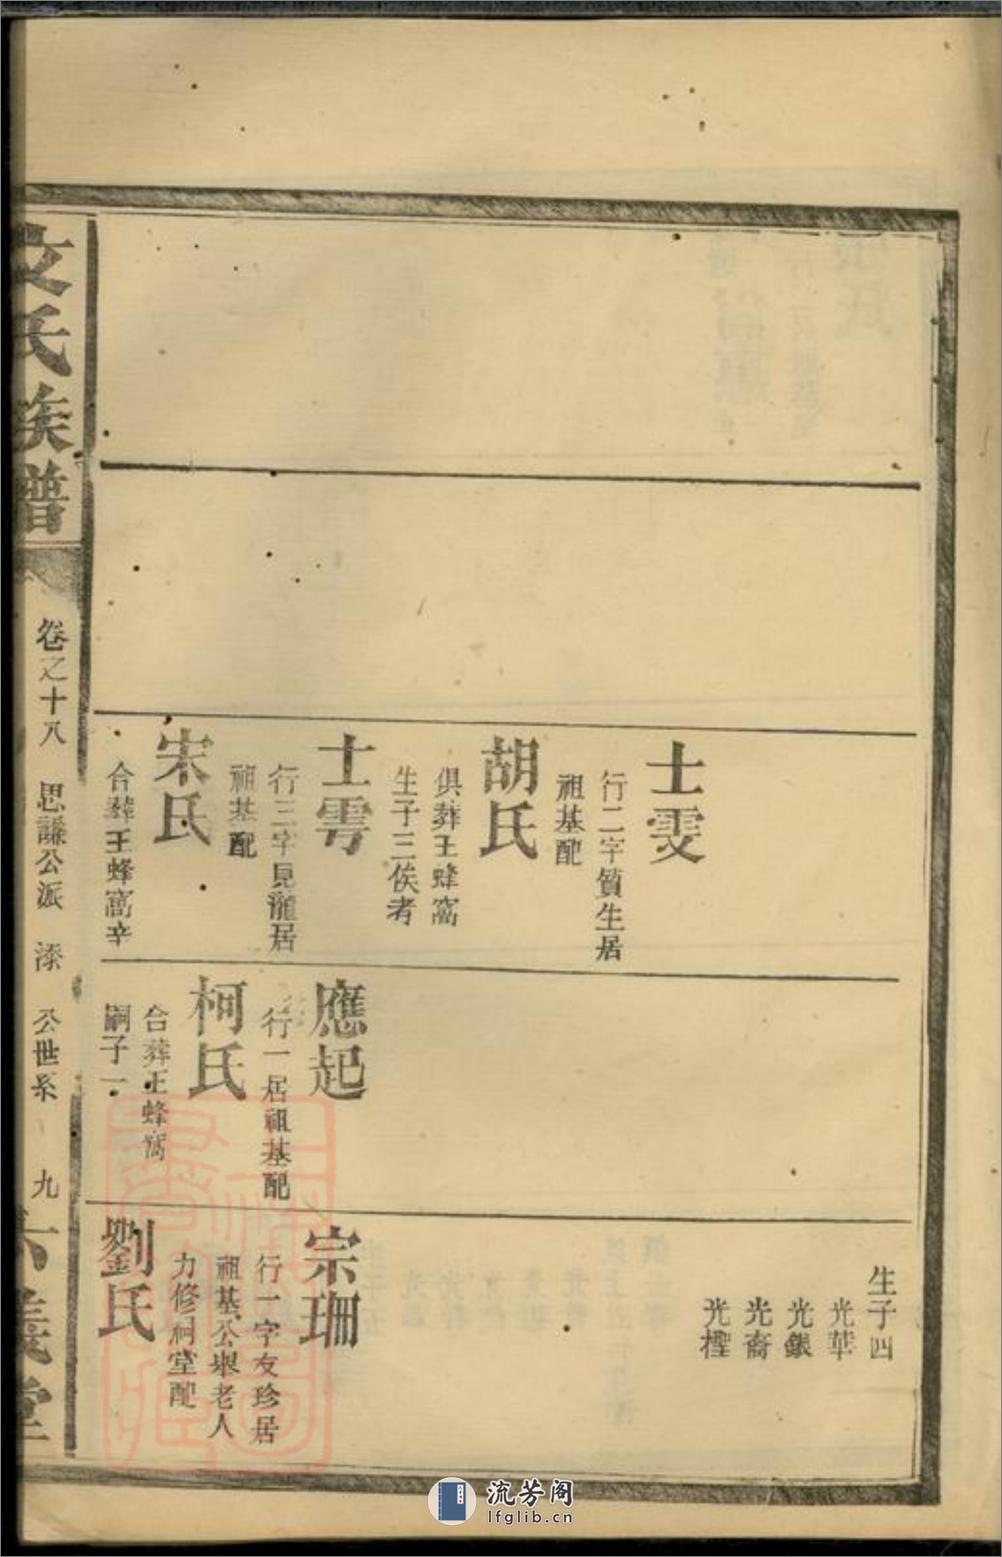 士雯
行二字質生居
祖基配
胡氏
俱葬王蜂窩
生子三俟考
士雱
行三字見龍居
祖基配
宋氏
合葬王蜂窩辛
應起
行一居祖基配
柯氏
合葬王蜂窩
嗣子一
生子四
光華
光銀
光裔
光樫
宗珊
行一字友珍居
祖基公舉老人
力修祠堂配
劉氏
文氏族譜
卷之十八 思謙公派 漆 公世系 九
六義堂
流芳阁
lfglib.cn